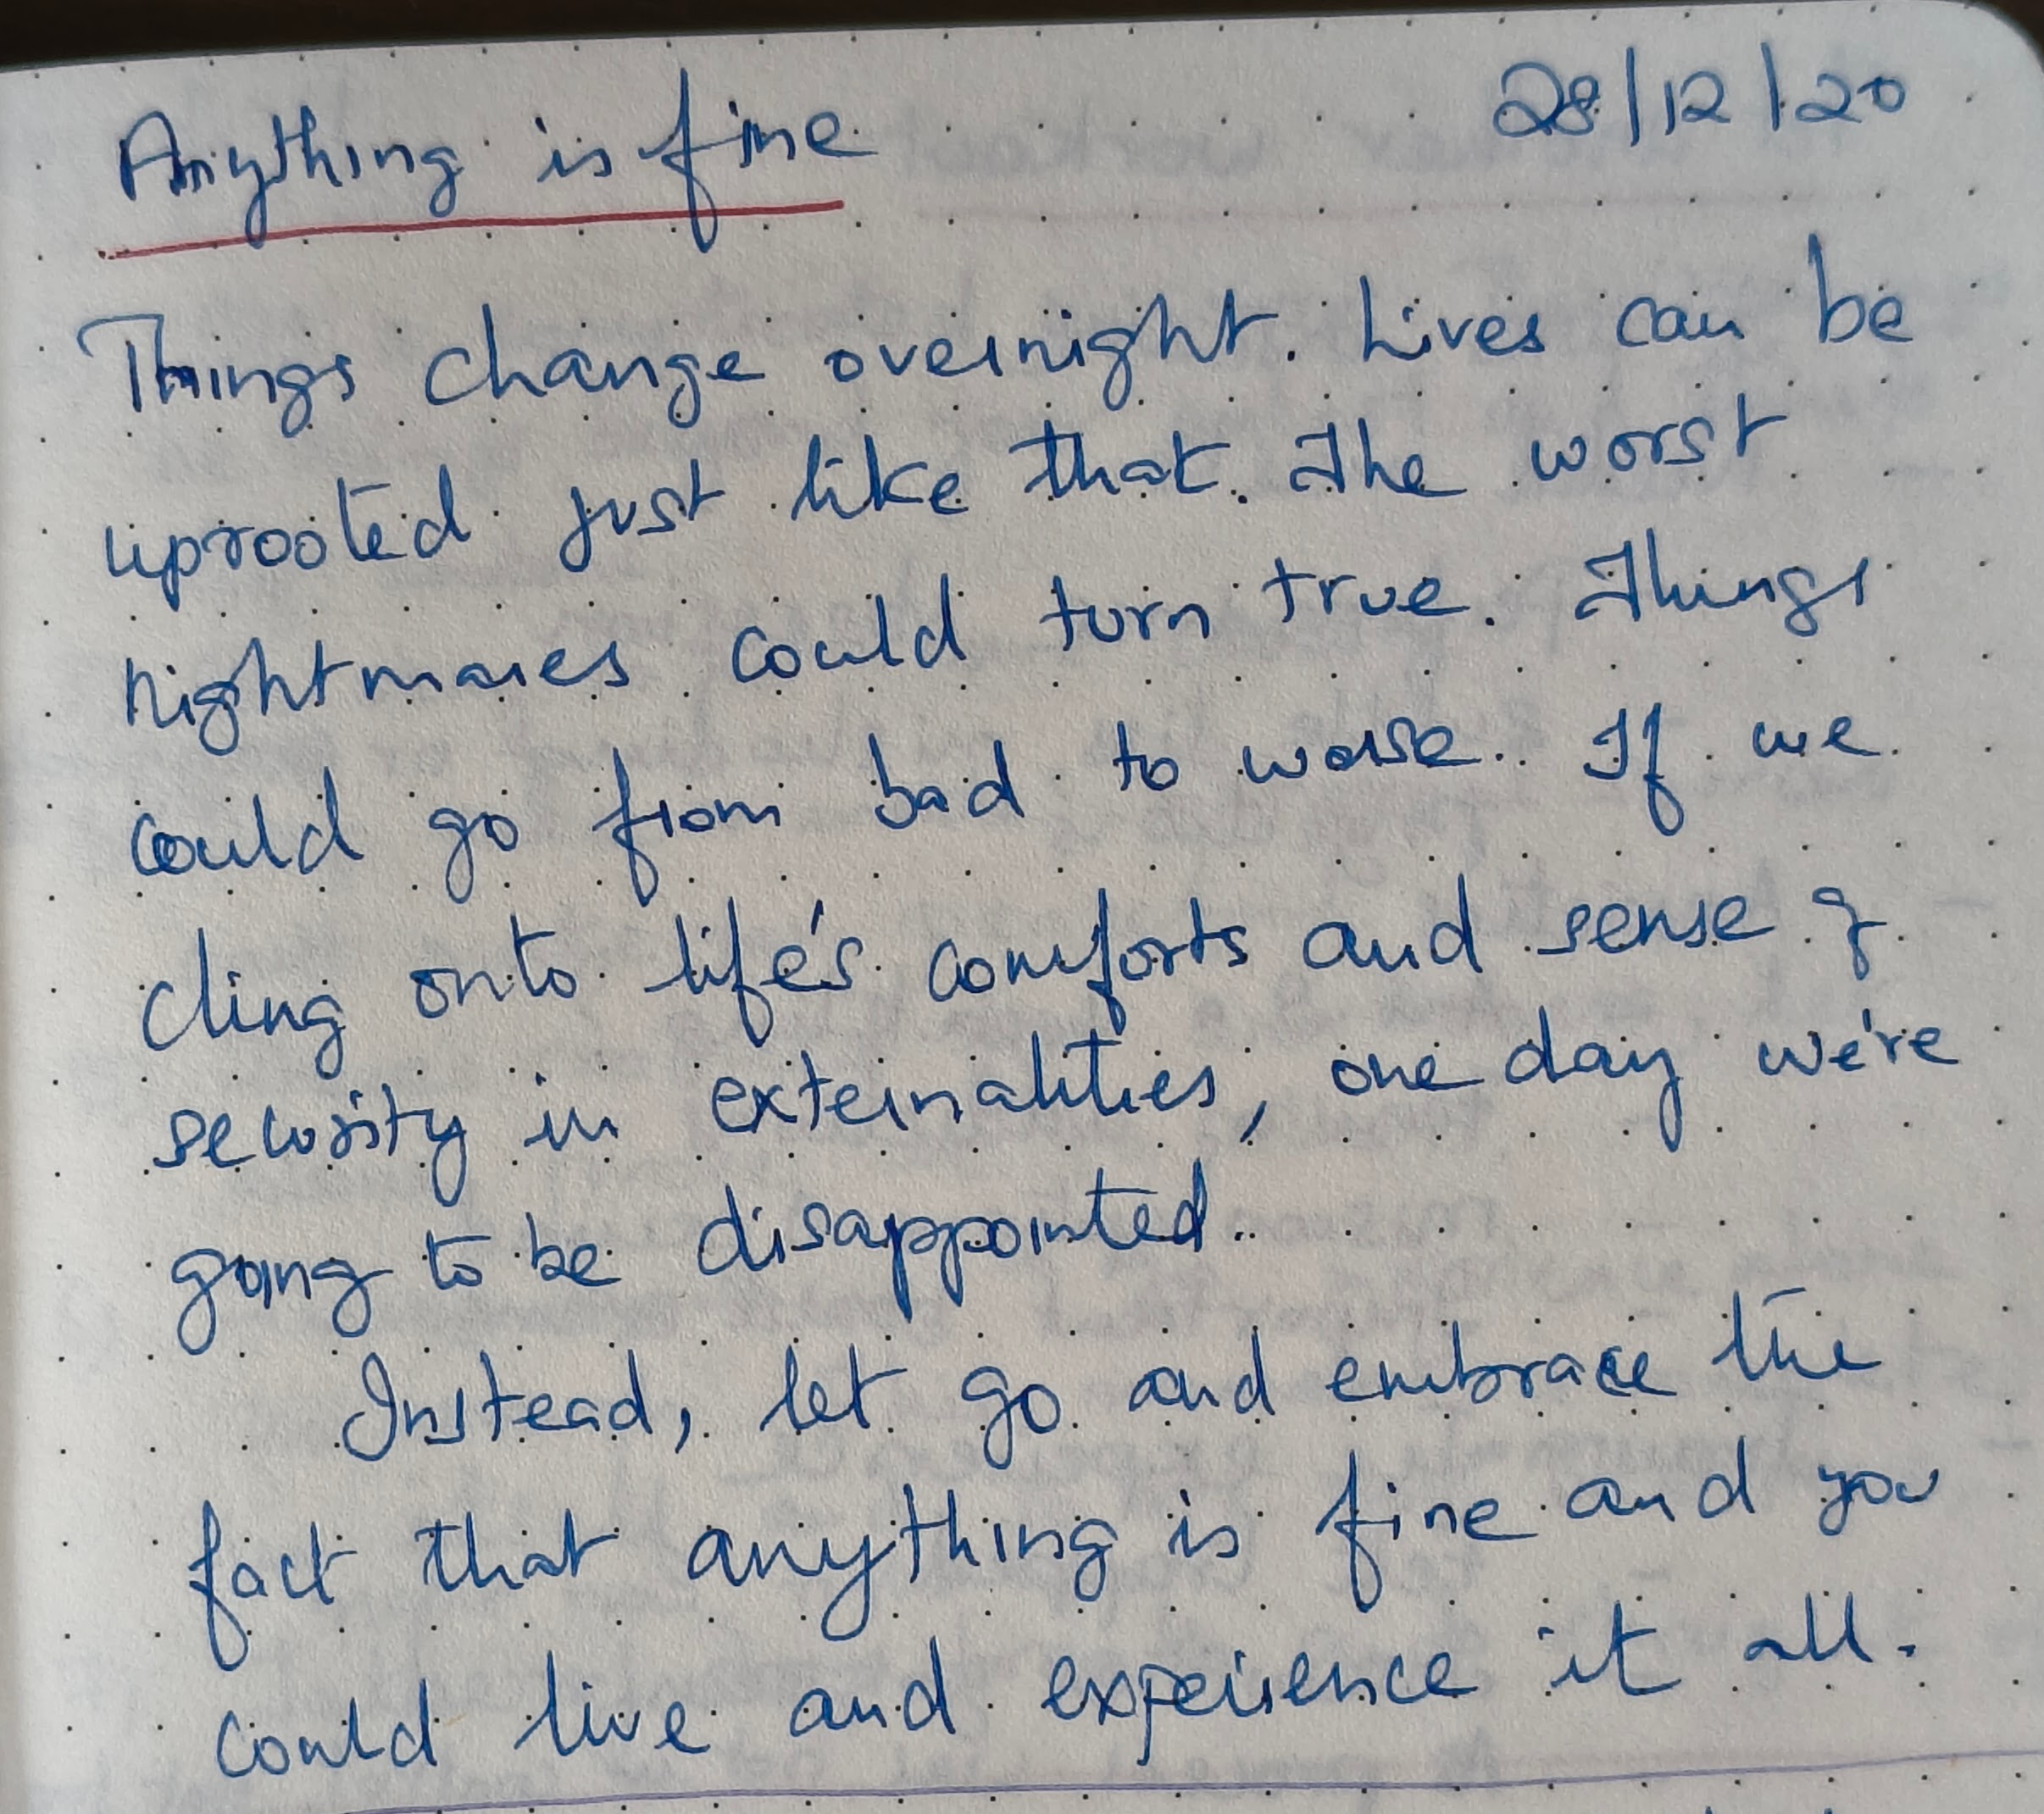 Anything is fine 28/12/20
Things change overnight. Lives can be
uprooted just like that. The worst
nightmares could turn true. Things
could go from bad to worse. If we
cling onto life's comforts and sense of
security in externalities, one day we're
going to be disappointed.
Instead, let go and embrace the
fact that anything is fine and you
could live and experience it all.